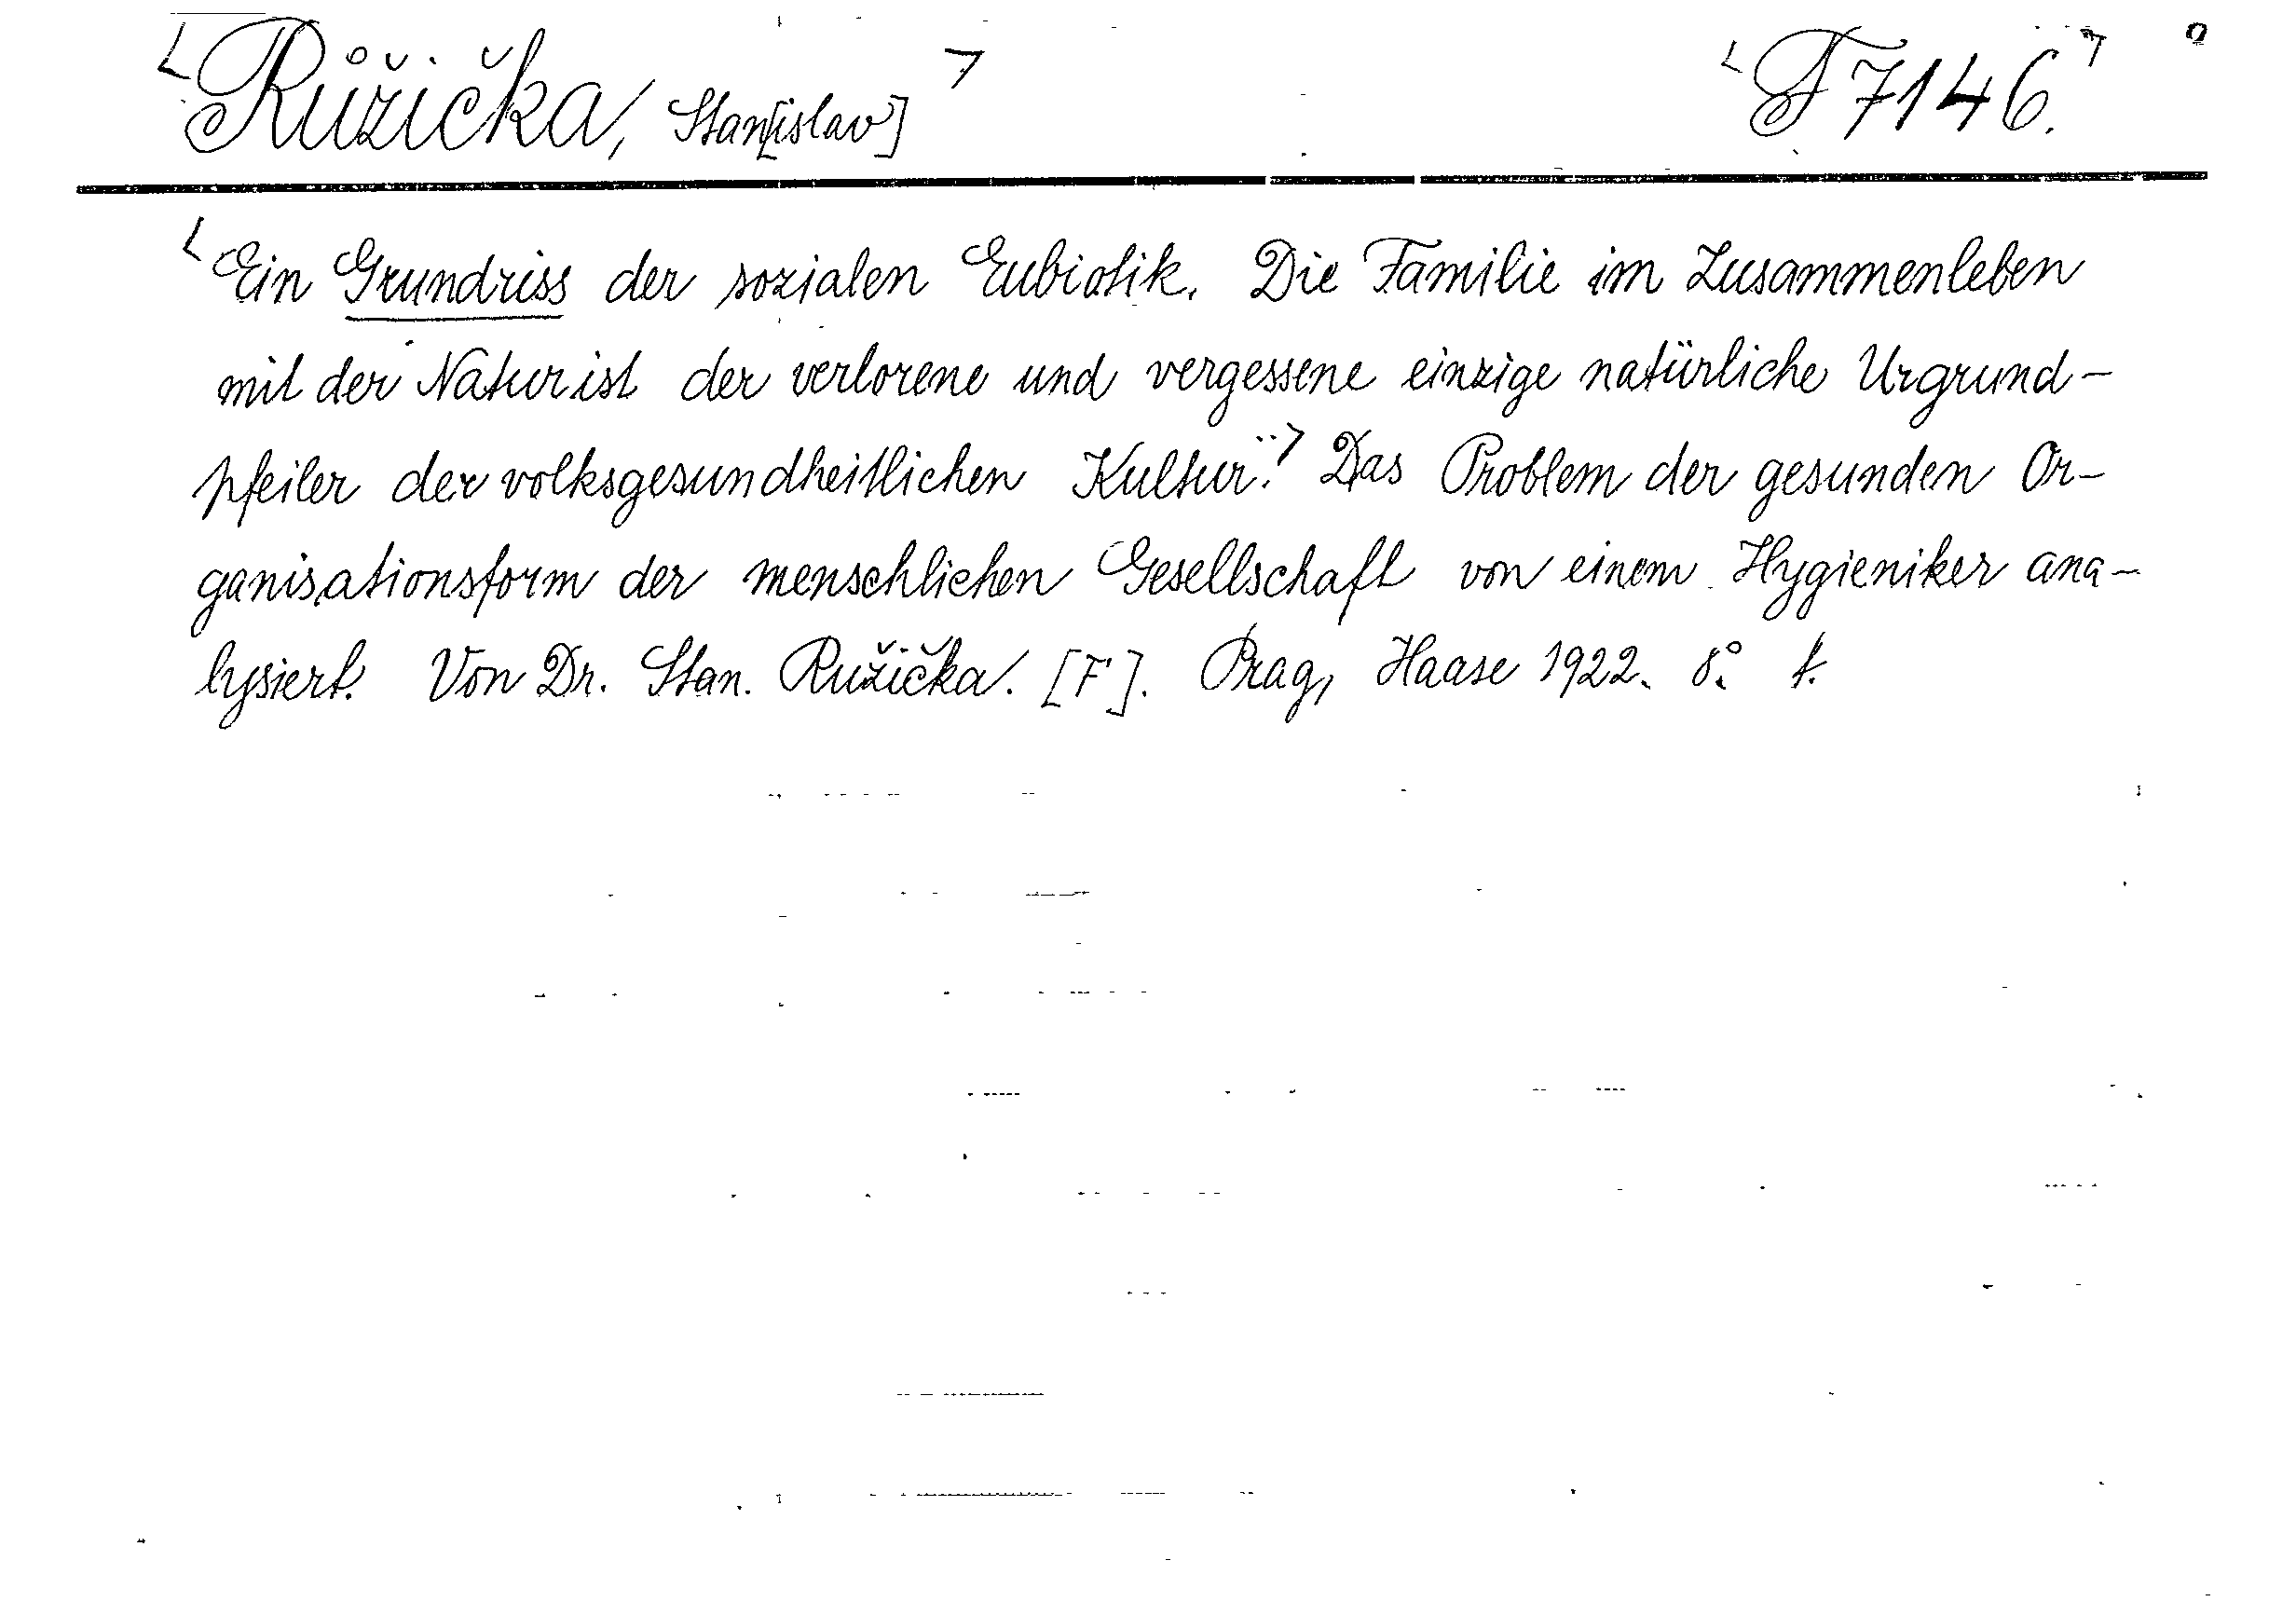 Růžička, Stan[islav] F 7146.
Ein Grundriss der sozialen Eubiotik. Die Familie im Zusammenleben
mit der Natur ist der verlorene und vergessene einzige natürliche Urgrund-
pfeiler der volksgesundheitlichen Kultur. Das Problem der gesunden Or-
ganisationsform der menschlichen Gesellschaft von einem Hygieniker ana-
lysiert. Von Dr. Stan. Ružička. [F]. Prag, Haase 1922. 8° f.